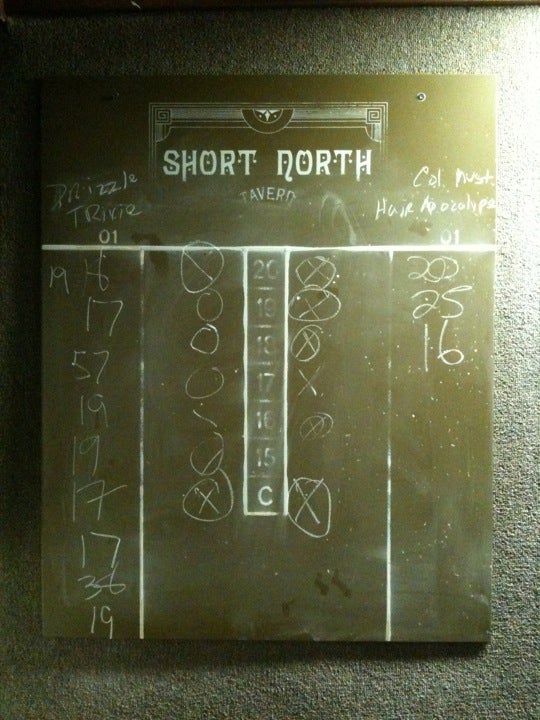 SHORT NORTH
TAVERN
Drizzle
Trivia
Col. Must.
Hair Apocalypse
01
01
19 18
17
57
19
19
17
17
36
19
20
19
18
17
16
15
C
20
25
16